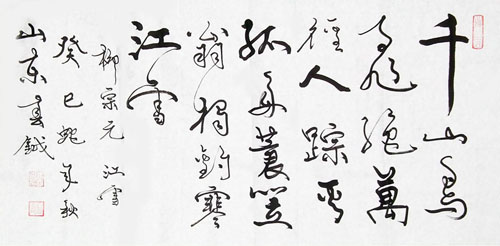 千山鳥
飛絶萬
徑人踪滅
孤舟蓑笠
翁獨釣寒
江雪
柳宗元 江雪
癸巳蛇年秋
山东春